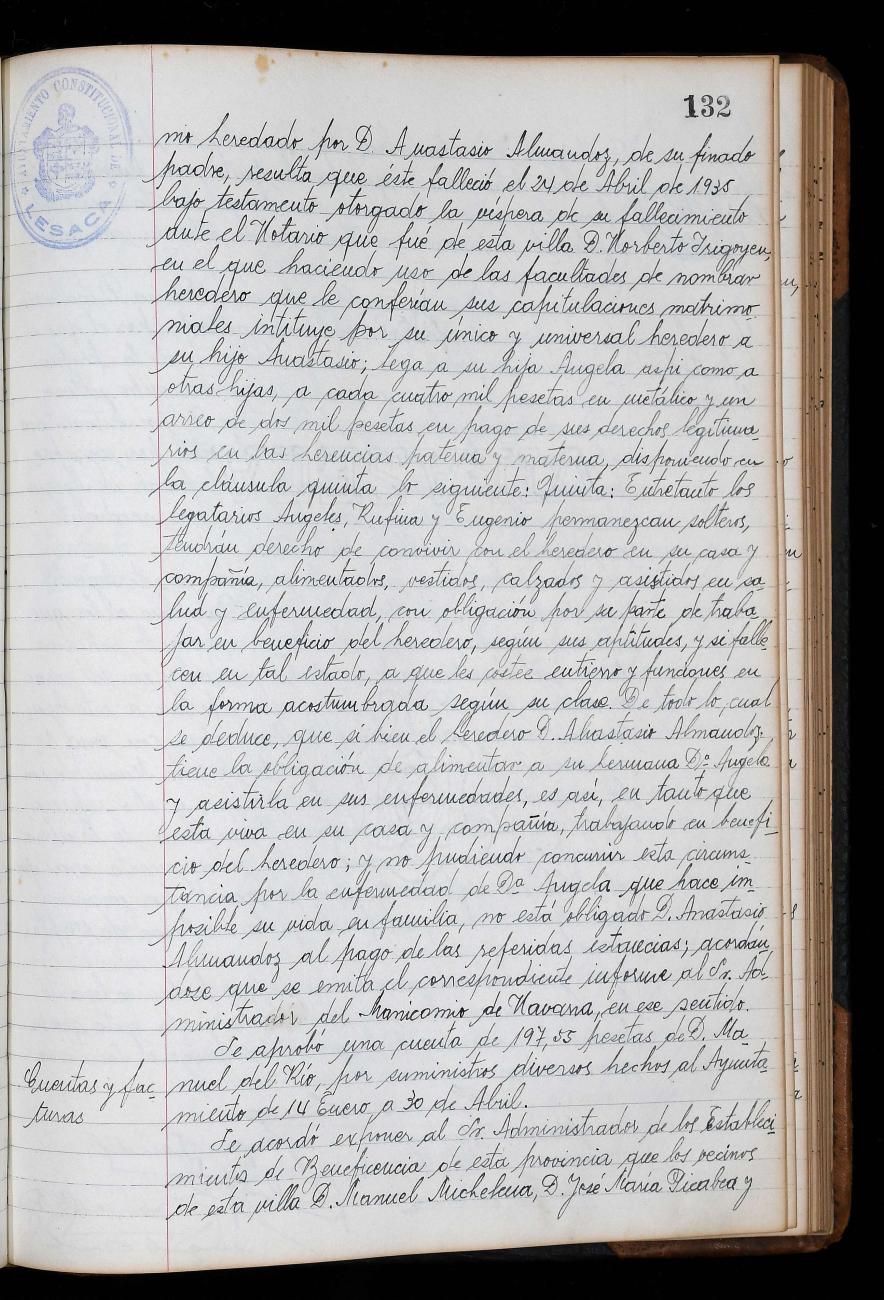 132
AYUNTAMIENTO CONSTITUCIONAL DE
LESACA
nio heredado por D. Anastasio Almandoz, de su finado
padre, resulta que éste falleció el 24 de Abril de 1935
bajo testamento otorgado la víspera de su fallecimiento
ante el Notario que fué de esta villa D. Norberto Irigoyen,
en el que haciendo uso de las facultades de nombrar
heredero que le conferían sus capitulaciones matrimo-
niales intituye por su único y universal heredero a
su hijo Anastasio; lega a su hija Angela aspi como a
otras hijas, a cada cuatro mil pesetas en metálico y un
arreo de dos mil pesetas en pago de sus derechos legitima-
rios en las herencias paterna y materna, disponiendo en
la cláusula quinta lo siguiente: Quinta: Entretanto los
legatarios Angeles, Rufina y Eugenio permanezcan solteros,
tendrán derecho de convivir con el heredero en su casa y
compañía, alimentados, vestidos, calzados y asistidos en sa-
lud y enfermedad, con obligación por su parte de traba-
jar en beneficio del heredero, según sus aptitudes, y si falle-
cen en tal estado, a que les costee entierro y funciones en
la forma acostumbrada según su clase. De todo lo cual
se deduce, que si bien el heredero D. Anastasio Almandoz
tiene la obligación de alimentar a su hermana Dª Angela
y asistirla en sus enfermedades, es así, en tanto que
esta viva en su casa y compañía, trabajando en benefi-
cio del heredero; y no pudiendo concurrir esta circuns-
tancia por la enfermedad de Dª Angela que hace im-
posible su vida en familia, no está obligado D. Anastasio
Almandoz al pago de las referidas estancias; acordán-
dose que se emita el correspondiente informe al Sr. Ad-
ministrador del Manicomio de Navarra, en ese sentido.
Se aprobó una cuenta de 197,55 pesetas de D. Ma-
Cuentas y fac-
turas
nuel del Río, por suministros diversos hechos al Ayunta-
miento de 14 Enero a 30 de Abril.
Se acordó exponer al Sr. Administrador de los Estableci-
mientos de Beneficencia de esta provincia que los vecinos
de esta villa D. Manuel Michelena, D. José María Picabea y